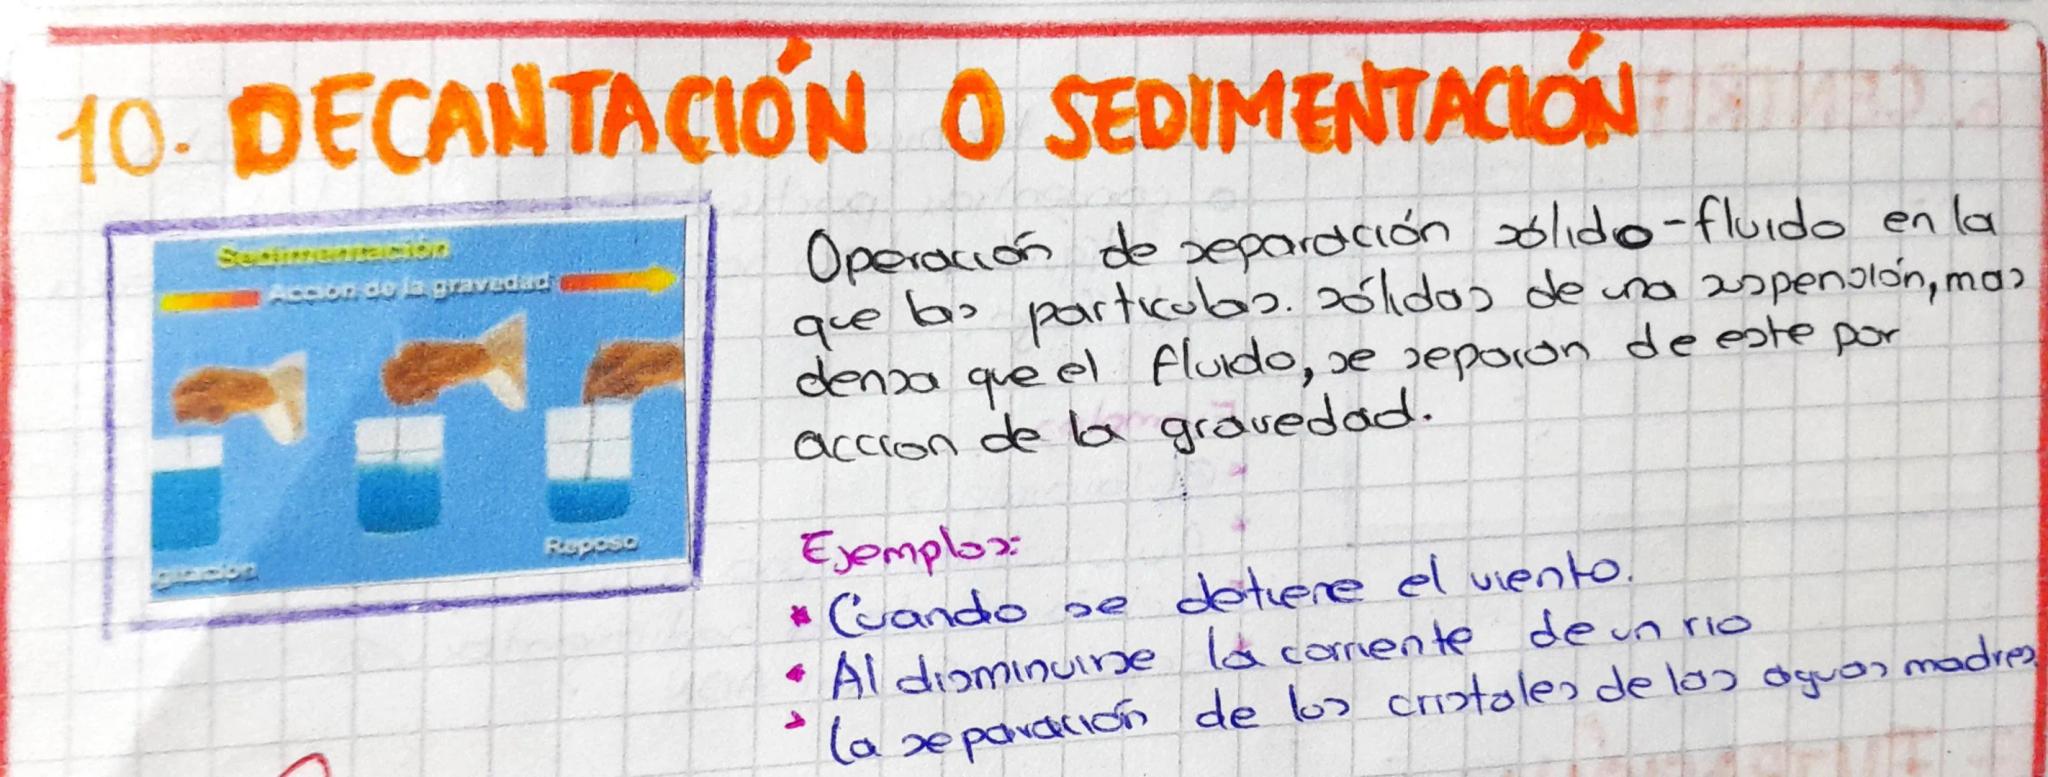 10. DECANTACIÓN O SEDIMENTACIÓN
Sedimentación
Acción de la gravedad
Reposo
Operación de separación sólido-fluido en la
que las particulas. sólidas de una suspensión, mas
densa que el fluido, se separan de este por
accion de la gravedad.
Ejemplos:
* Cuando se detiene el viento.
• Al disminuirse la corriente de un rio
• La separación de los cristales de las aguas madres